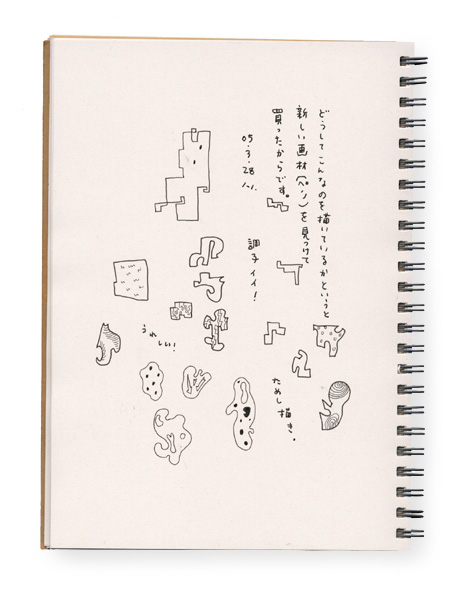 どうしてこんなのを描いているかというと
新しい画材(ペン)を見つけて
買ったからです。
05.3.28
調子イイ!
うれしい!
ためし描き。